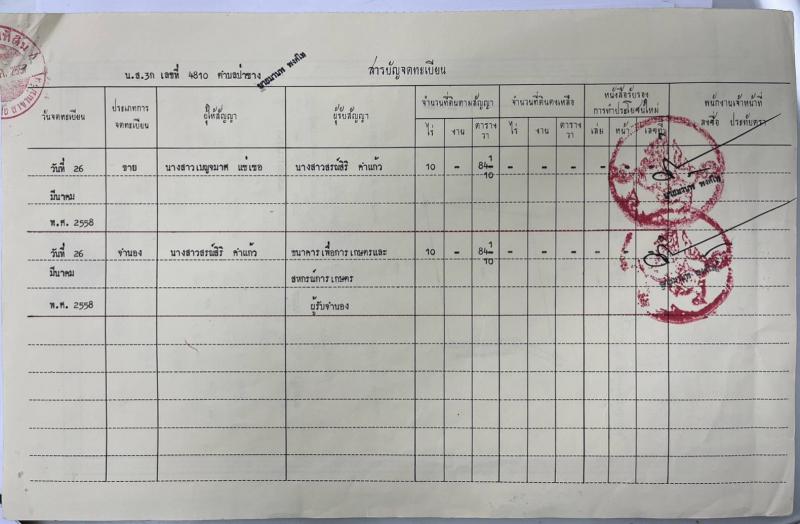 น.ส.3ก เลขที่ 4810 ตำบลป่าซาง
สารบัญจดทะเบียน
วันจดทะเบียน ประเภทการจดทะเบียน ผู้ให้สัญญา ผู้รับสัญญา จำนวนที่ดินตามสัญญา จำนวนที่ดินคงเหลือ หนังสือรับรองการทำประโยชน์ใหม่ พนักงานเจ้าหน้าที่ ลงชื่อ ประทับตรา
ไร่ งาน ตารางวา ไร่ งาน ตารางวา เล่ม หน้า เลขที่
วันที่ 26 ขาย นางสาวเบญจมาศ แซ่เซอ นางสาวสรณ์สิริ คำแก้ว 10 - 84 1/10 - - - - -
มีนาคม
พ.ศ. 2558
วันที่ 26 จำนอง นางสาวสรณ์สิริ คำแก้ว ธนาคารเพื่อการเกษตรและ 10 - 84 1/10 - - - - -
มีนาคม สหกรณ์การเกษตร
พ.ศ. 2558 ผู้รับจำนอง